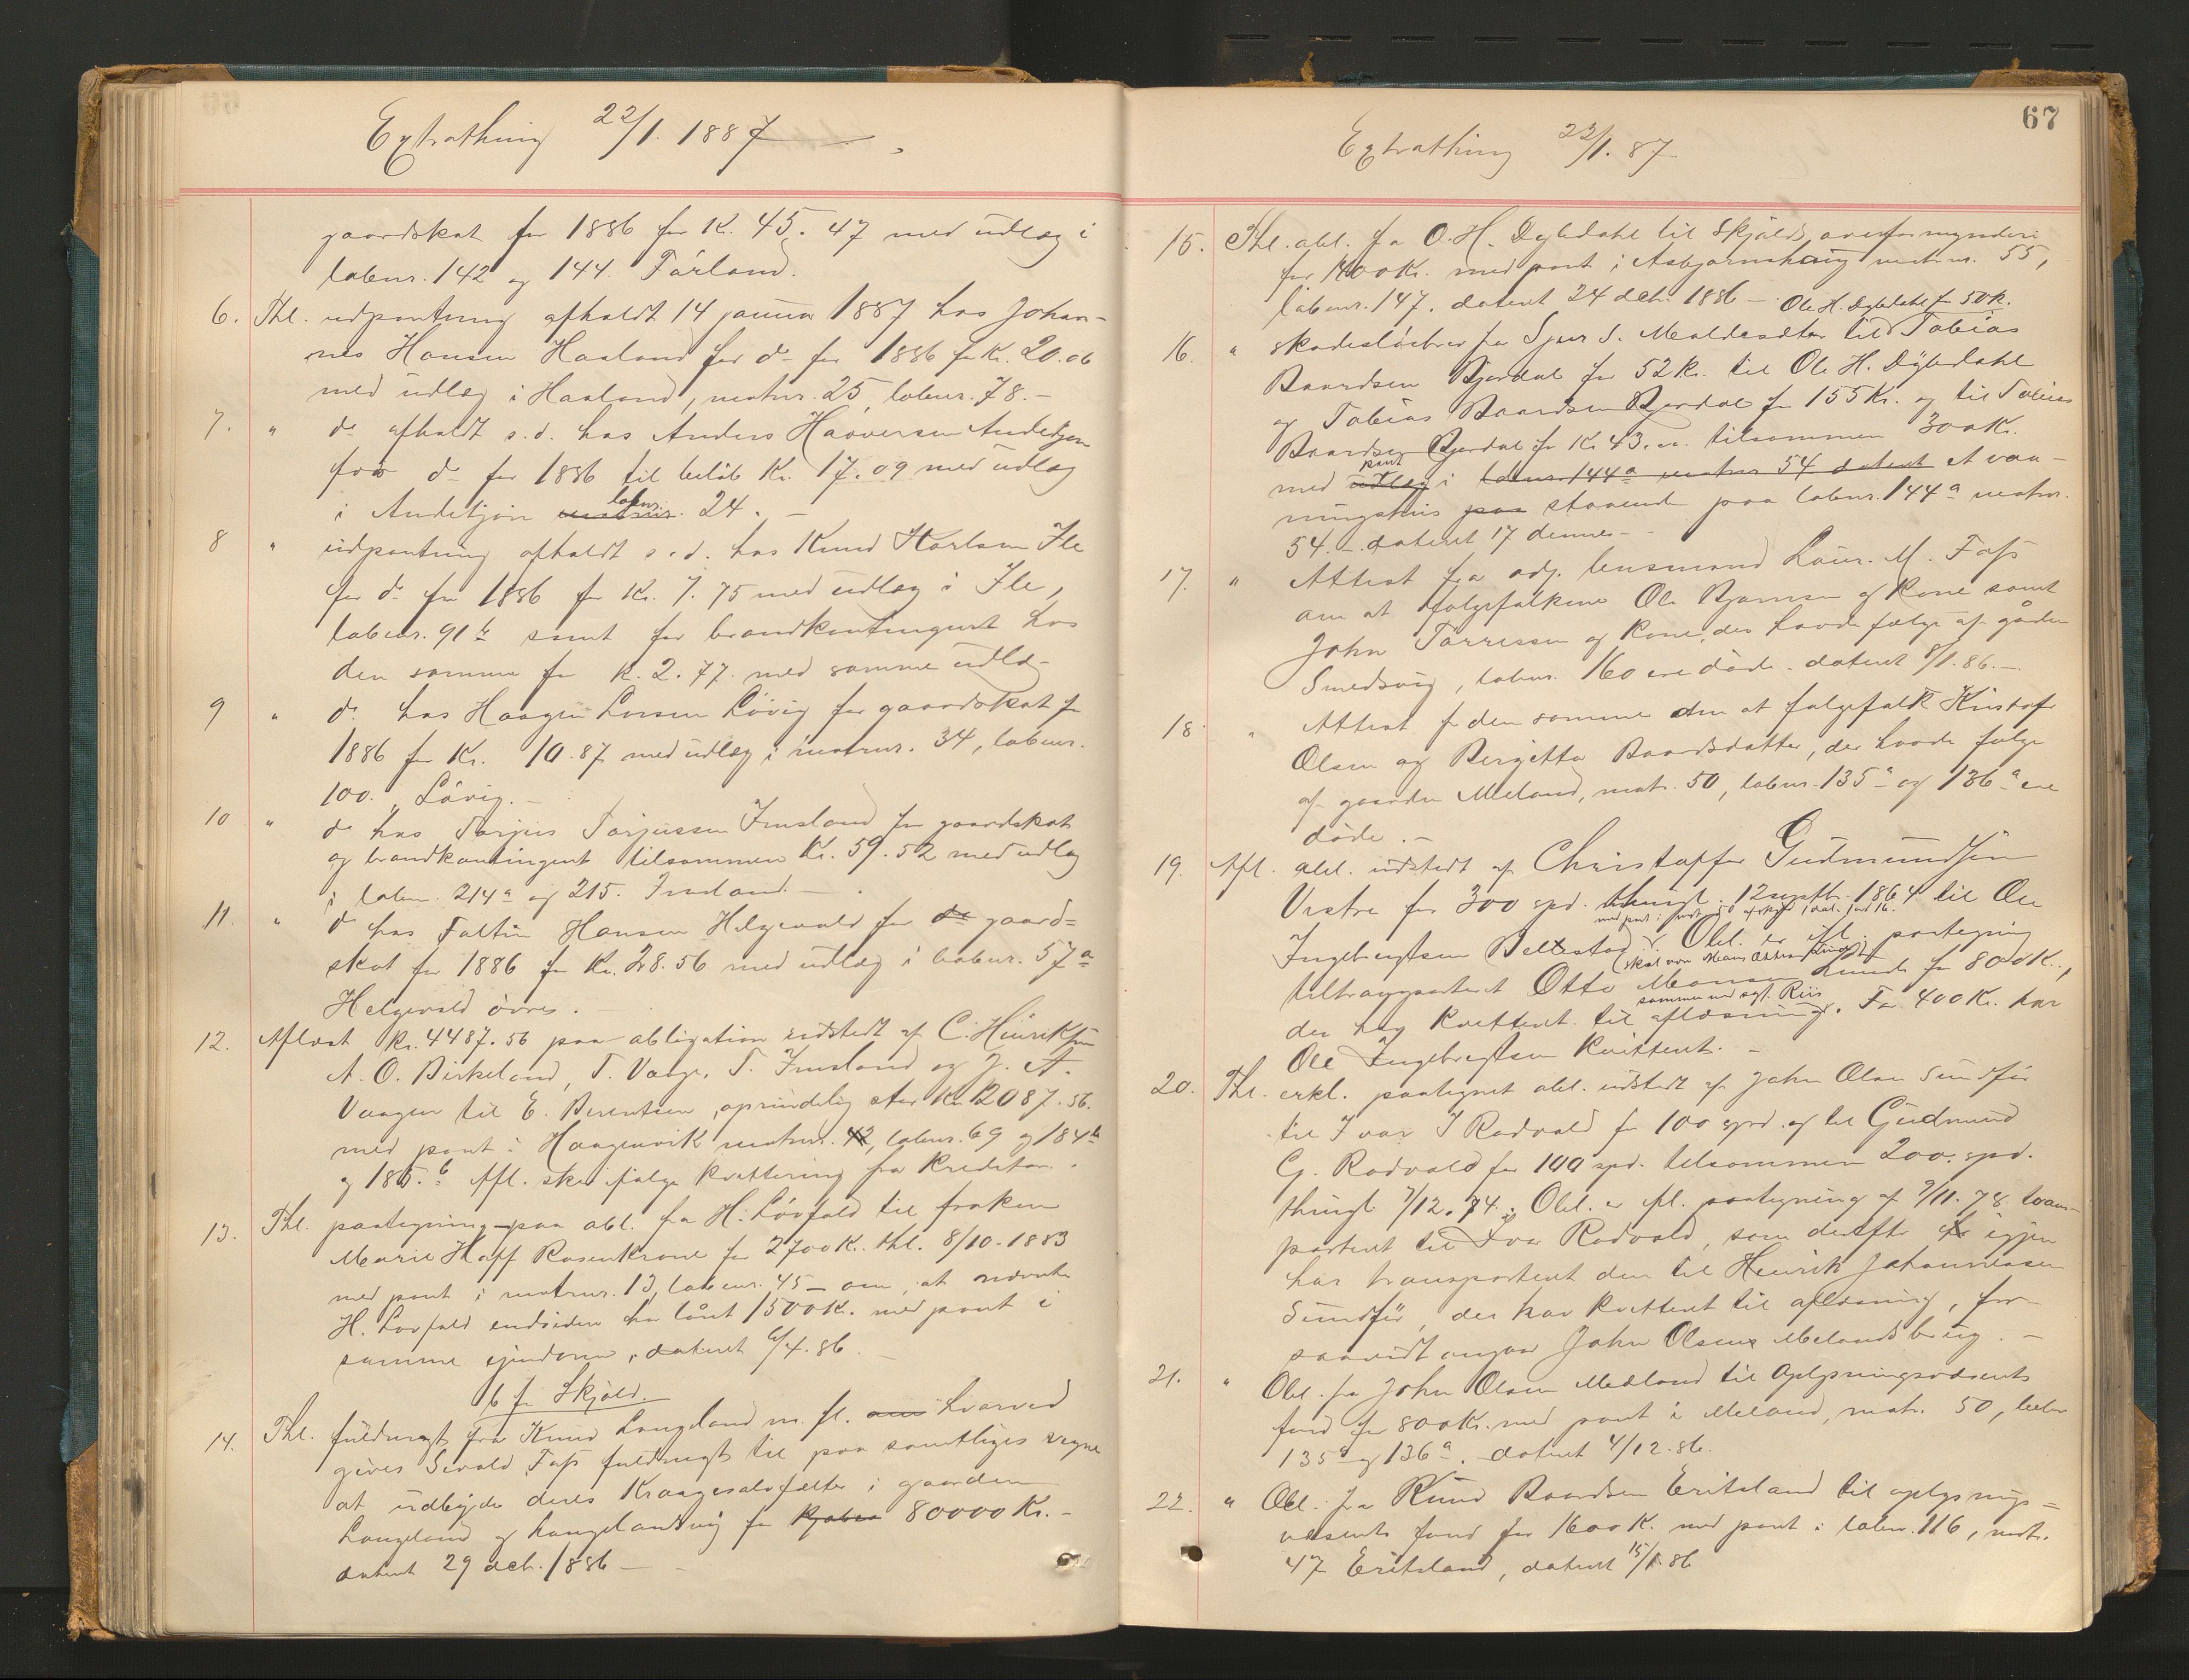 Extrathing 22/1. 1887
gaardskat for 1886 for Kr. 45.47 med udlæg i
løbenr. 142 og 144. Førland.
6. Thl. udpantning afholdt 14 januar 1887 hos Johan-
nes Hansen Haaland for do for 1886 for Kr. 20.06
med udlæg i Haaland, matnr. 25, løbenr. 78. -
7. " do afholdt s.d. hos Anders Haaversen
for do for 1886 til beløb Kr. 17.09 med udlæg
i løbenr. 24. -
8 " udpantning afholdt s.d. hos Knud Karlsen Ile
for do for 1886 for Kr. 7.75 med udlæg i Ile,
løbenr. 91b samt for brandkontingent hos
den samme for K. 2.77. med samme udlæ-
9 " do hos Haagen Larsen Løvig for gaardskat for
1886 for Kr. 10.87 med udlæg i matnr. 34, løbenr.
100. Løvig. -
10 " do hos Torjus Torjussen Imsland for gaardskat
og brandkontingent tilsammen Kr. 59.52 med udlæg
i løbenr. 214a og 215. Imsland. -
11. " do hos Faltin Hansen Helgevold for do gaard=
skat for 1886 for Kr. 28.56 med udlæg i løbenr. 57a
Helgevold övre.
12. Aflæst Kr. 4487.56 paa obligation udstedt af C. Hinriksen
A. O. Birkeland, T. Vaage, T. Imsland og J. A.
Vaagen til E. Berentsen, oprindelig stor Kr. 12087.56.
med pant i Haagenvik matnr. 42, løbenr. 69 og 184b
og 185.b Afl. sker ifølge kvittering fra kreditor.
13. Thl. paategning paa obl. fra H. Løvfald til frøken
Marie Hoff Rosenkrone for 2700 Kr. thl. 8/10-1883
med pant i matnr. 13, løbenr. 45 - om, at nævnte
H. Lovfald endvidere har lånt 1500 Kr. med pant i
samme ejendom, dateret 6/4.86. -
b for Skjold.
14. Thl. fuldmagt fra Knud Langeland m. fl. om hvorved
gives Sivald Fass fuldmagt til paa samtliges vegne
at udbyde deres i gaarden
Langeland og Langelandsvig for 80000 Kr. -
dateret 29 decb. 1886 -
67
Extrathing 22/1. 87
15. Thl. obl. fra O. H. Dybdahl til Skjolds overformynderi
for 1400 Kr. med pant i Asbjørnshaug matnr. 55,
løbenr. 147. dateret 24 decb. 1886 - Ole H. Dybdahl for 50 K.
16. " skadesløsbrev fra Sjur S. til Tobias
Baardsen Bjordal for 52 Kr. til Ole H. Dybdahl
og Tobias Baardsen Bjordal for 155 Kr. og til Tobias
Baardsen Bjordal for Kr. 43.00. tilsammen 300 Kr.
pant
med udlæg i løbenr. 144a matnr 54 dateret et vaa-
ningshus paa staaende paa løbenr. 144a matnr.
54. - dateret 17 dennes -
17. " Attest fra adj. lensmand Laur. M. Fass
om at folgefolkene Ole Bjørnsen og kone samt
John Tørressen og kone, der havde følge af gården
Smedsvig, løbenr. 160 ere døde. dateret 8/1.86. -
18. " Attest fra den samme om at folgefolk Kristofer
Olsen og Bergitta Baardsdatter, der havde følge
af gaarden Meland, matr. 50, løbenr. 135a og 136a ere
døde. -
19. Afl. obl. udstedt af Christoffer Gudmundsen
Vestre for 300 spd. thingl. 12 septbr. 1864 til Ole
Ingebregtsen. Obl. er ifl. paategning
transporteret Otto Monsen Lunde for 800 K.,
samme ved sgf. Riis
der har kvitteret til aflæsning. For 400 Kr. har
Ole Ingebregtsen kvitteret. -
20. Thl. erkl. paategnet obl. udstedt af John Olsen Sundfør
til Ivar I Rodvald for 100 spd. og til Gudmund
G. Rodvald for 100 spd. tilsammen 200. spd.
thingl. 7/12.74. Obl. er ifl. paategning af 9/11.78 trans-
porteret til Ivar Rodvald, som derefter igjen
har transporteret den til Henrik Johannessen
Sundfør, der har kvitteret til aflæsning, for-
saavidt angaar John Olsens Melandsbrug. -
21. " Obl. fra John Olsen Meland til Oplysningsvæsenets
fond for 800 Kr. med pant i Meland, matr. 50, løbnr
135a og 136a. dateret 4/12.86.
22. " Obl. fra Knud Baardsen Eriksland til oplysnings=
væsenets fond for 1600 K. med pant i løbenr. 116, matr.
47 Eriksland, dateret 15/1.86